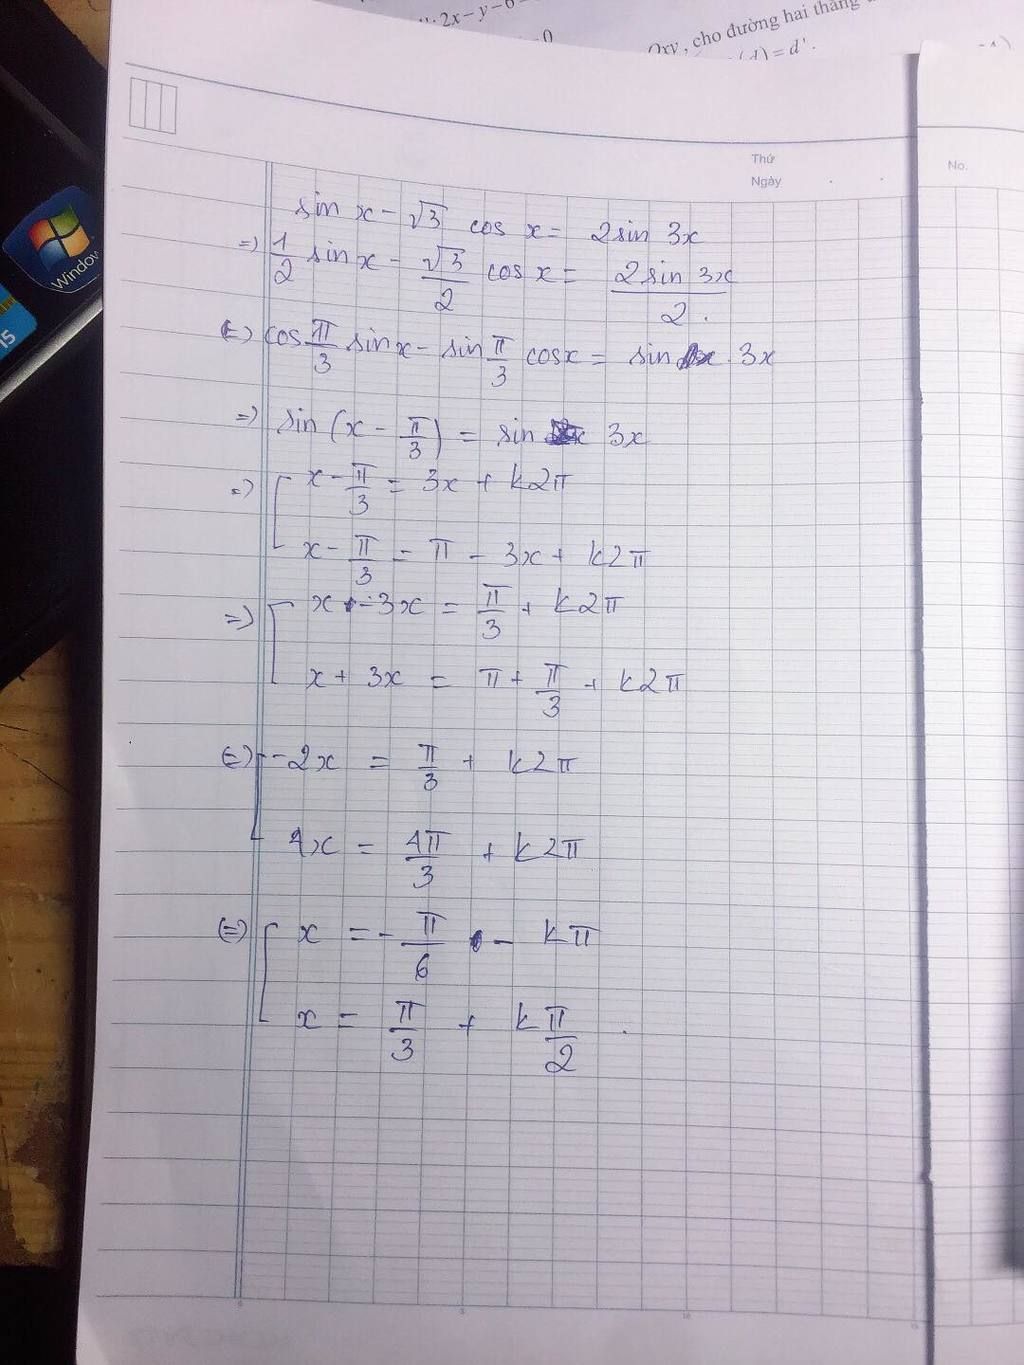 2x-y-6
=0
Oxy, cho đường hai thẳng
(d)=d'.
Thứ
Ngày
No.
Windov
15
sin x - √3 cos x = 2sin 3x
=> 1/2 sin x - √3/2 cos x = 2 sin 3x/2.
<=> cos π/3 sin x - sin π/3 cos x = sin 3x
=> sin (x - π/3) = sin 3x
=> [ x - π/3 = 3x + k2π
x - π/3 = π - 3x + k2π
=> [ x - 3x = π/3 + k2π
x + 3x = π + π/3 + k2π
<=> [ -2x = π/3 + k2π
4x = 4π/3 + k2π
<=> [ x = - π/6 - kπ
x = π/3 + k π/2.